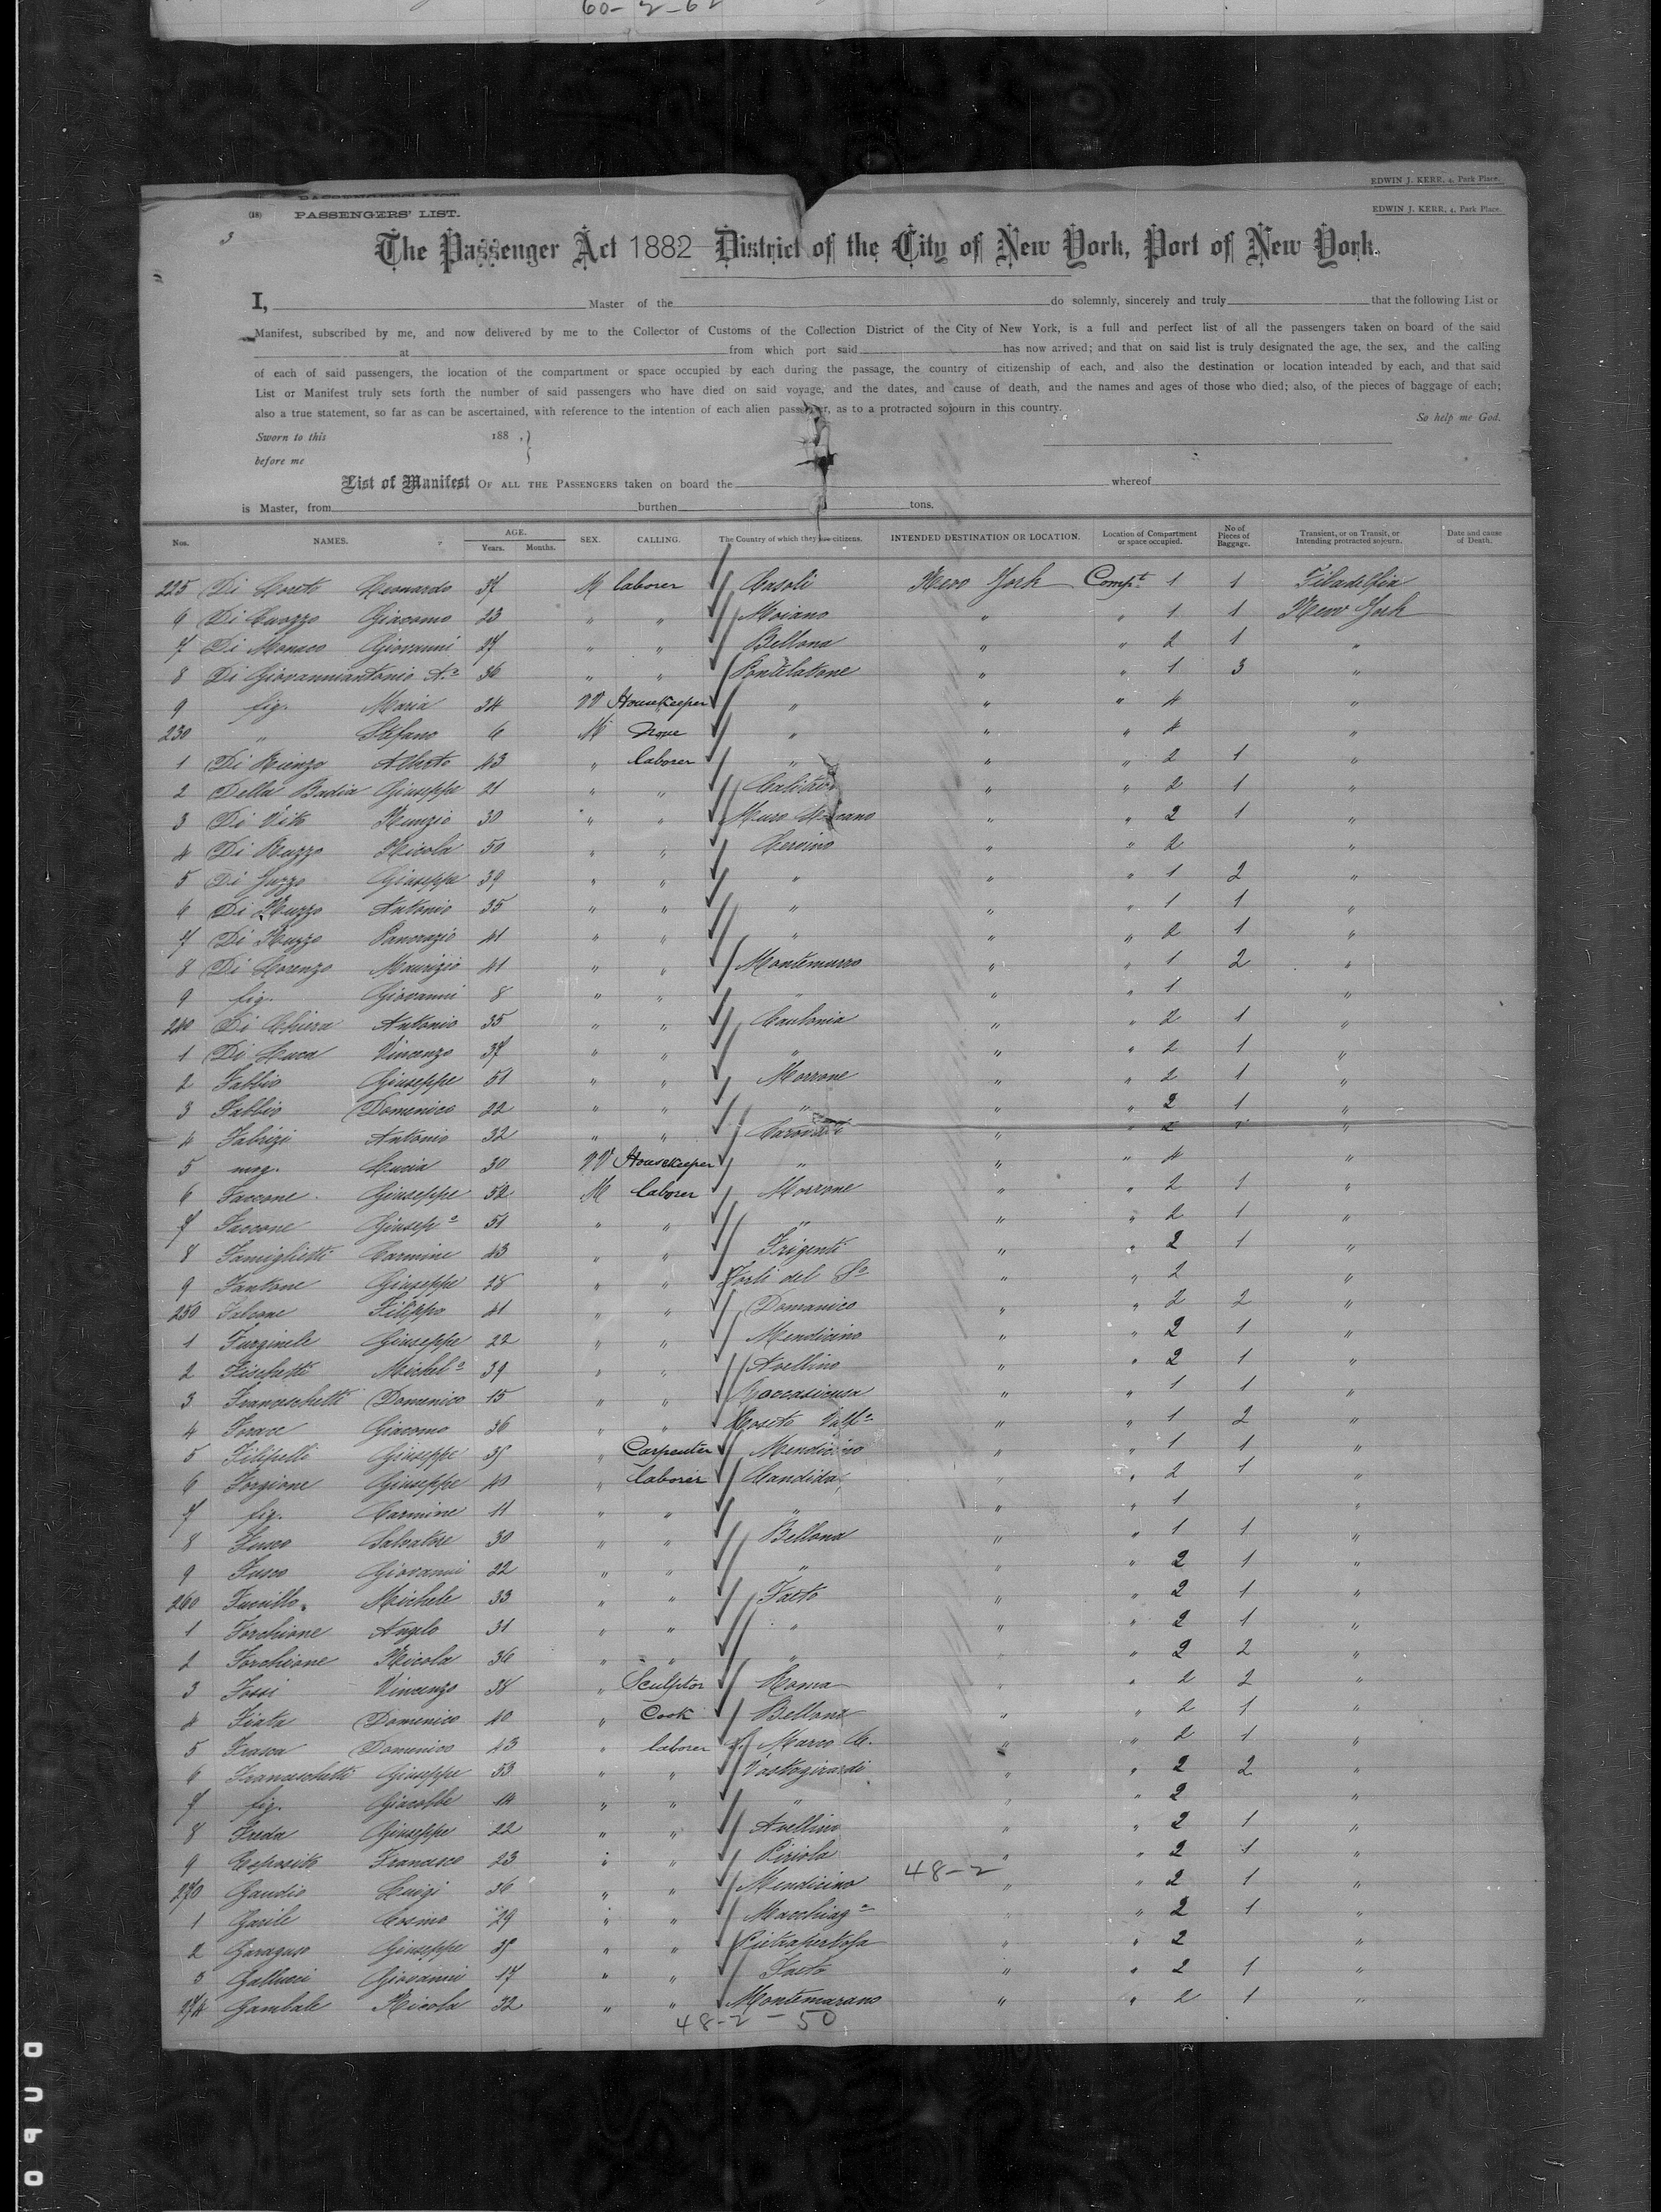 60-2-62
EDWIN J. KERR, 4, Park Place.
(18) PASSENGERS' LIST. EDWIN J. KERR, 4, Park Place.
3
The Passenger Act 1882 District of the City of New York, Port of New York.
I, Master of the do solemnly, sincerely and truly that the following List or
Manifest, subscribed by me, and now delivered by me to the Collector of Customs of the Collection District of the City of New York, is a full and perfect list of all the passengers taken on board of the said
at from which port said has now arrived; and that on said list is truly designated the age, the sex, and the calling
of each of said passengers, the location of the compartment or space occupied by each during the passage, the country of citizenship of each, and also the destination or location intended by each, and that said
List or Manifest truly sets forth the number of said passengers who have died on said voyage, and the dates, and cause of death, and the names and ages of those who died; also, of the pieces of baggage of each;
also a true statement, so far as can be ascertained, with reference to the intention of each alien passenger, as to a protracted sojourn in this country. So help me God.
Sworn to this 188 , }
before me
List of Manifest OF ALL THE PASSENGERS taken on board the whereof
is Master, from burthen tons.
Nos. NAMES. AGE. Years. Months. SEX. CALLING. The Country of which they are citizens. INTENDED DESTINATION OR LOCATION. Location of Compartment or space occupied. No of Pieces of Baggage. Transient, or on Transit, or Intending protracted sojourn. Date and cause of Death.
225 Di Loreto Leonardo 37 M laborer Casoli New York Compt 1 1 Filadelfia
6 Di Cuozzo Giacomo 23 " " Moiano " " 1 1 New York
7 Di Monaco Giovanni 27 " " Bellona " " 2 1 "
8 Di Giovanniantonio Ao 36 " " Pontelatone " " 1 3 "
9 fig. Maria 24 W Housekeeper " " " 4 "
230 " Stefano 6 M None " " " 4 "
1 Di Rienzo Alberto 43 " laborer " " " 2 1 "
2 Della Badia Giuseppe 21 " " Calitri " " 2 1 "
3 Di Vito Nunzio 30 " " Muro " " 2 1 "
4 Di Nicola 50 " " " " 2 "
5 Di Giuseppe 39 " " " " " 1 2 "
6 Di Antonio 35 " " " " " 1 1 "
7 Di Pancrazio 41 " " " " " 2 1 "
8 Di Lorenzo Maurizio 41 " " Montemurro " " 1 2 "
9 fig. Giovanni 8 " " " " " 1 "
240 Di Chiera Antonio 35 " " Caulonia " " 2 1 "
1 Di Luca Vincenzo 37 " " " " " 2 1 "
2 Fabbio Giuseppe 51 " " Morrone " " 2 1 "
3 Fabbio Domenico 22 " " " " " 2 1 "
4 Fabrizi Antonio 32 " " " " "
5 mog. Lucia 30 W Housekeeper " " " 4 "
6 Faccone Giuseppe 52 M laborer Morrone " " 2 1 "
7 Faccone Giusepe 51 " " " " " 2 1 "
8 Famiglietti Carmine 43 " " Frigenti " " 2 1 "
9 Fantone Giuseppe 28 " " Forli del So " " 2 "
250 Falcone Filippo 41 " " Domanico " " 2 2 "
1 Furginele Giuseppe 22 " " Mendicino " " 2 1 "
2 Fischetti Michele 39 " " Avellino " " 2 1 "
3 Franceschetti Domenico 15 " " Roccasicura " " 1 1 "
4 Forace Giacomo 36 " " Roseto Valfe " " 1 2 "
5 Filipelli Giuseppe 35 " Carpenter Mendicino " " 1 1 "
6 Forgione Giuseppe 40 " laborer Candida " " 2 1 "
7 fig. Carmine 11 " " " " " 1 "
8 Fusco Salvatore 30 " " Bellona " " 1 1 "
9 Fusco Giovanni 22 " " " " " 2 1 "
260 Fucillo Michele 33 " " Faeto " " 2 1 "
1 Forchione Angelo 31 " " " " " 2 1 "
2 Forchione Nicola 36 " " " " " 2 2 "
3 Fossi Vincenzo 38 " Sculptor Roma " " 2 2 "
4 Fiata Domenico 40 " Cook Bellona " " 2 1 "
5 Frasca Domenico 43 " laborer S. Marco " " 2 1 "
6 Franceschetti Giuseppe 53 " " Vastogirardi " " 2 2 "
7 fig. Giacobbe 14 " " " " " 2 "
8 Freda Giuseppe 22 " " Avellino " " 2 1 "
9 Esposito Francesco 23 " " " " 2 1 "
48-2
270 Gaudio Luigi 36 " " Mendicino " " 2 1 "
1 Garile Cosmo 29 " " Macchiage " " 2 1 "
2 Garaguso Giuseppe 35 " " Pietrapertosa " " 2 "
3 Gallucci Giovanni 17 " " Faeto " " 2 1 "
274 Gambale Nicola 32 " " Montemarano " " 2 1 "
48-2-50